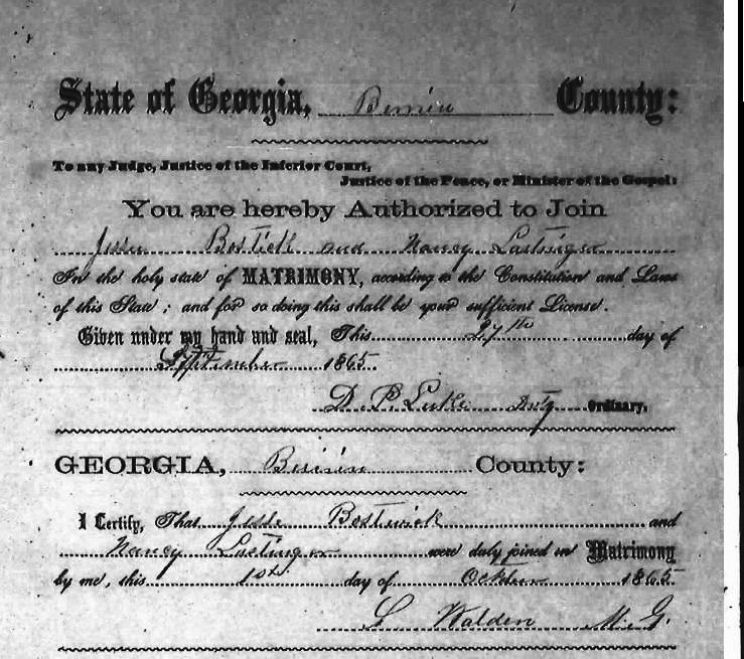 State of Georgia, Berrien County:
To any Judge, Justice of the Inferior Court,
Justice of the Peace, or Minister of the Gospel:
You are hereby Authorized to Join
Jesse Bostick and Nancy Lastinger
In the holy state of MATRIMONY, according to the Constitution and Laws
of this State; and for so doing this shall be your sufficient License.
Given under my hand and seal, This 27th day of
September 1865
D. P. Luke Ordinary,
GEORGIA, Berrien County:
I Certify, That Jesse Bostwick and
Nancy Lastinger were duly joined in Matrimony
by me, this 1st day of 1865
L Walden M. G.